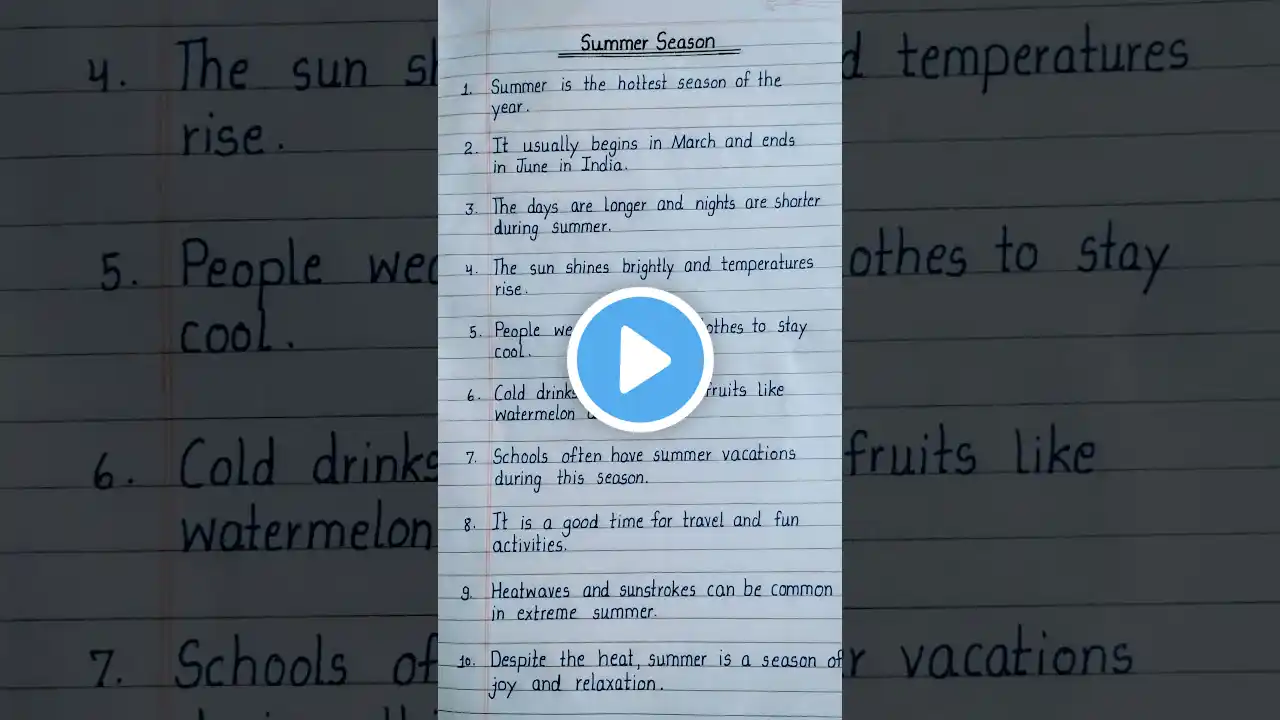 Summer Season
1. Summer is the hottest season of the
year.
2. It usually begins in March and ends
in June in India.
3. The days are longer and nights are shorter
during summer.
4. The sun shines brightly and temperatures
rise.
5. People to stay
cool.
6. Cold fruits like
watermelon
7. Schools often have summer vacations
during this season.
8. It is a good time for travel and fun
activities.
9. Heatwaves and sunstrokes can be common
in extreme summer.
10. Despite the heat, summer is a season of
joy and relaxation.
4. The sun temperatures
rise.
5. People to stay
cool.
6. Cold drinks fruits like
watermelon
7. Schools vacations